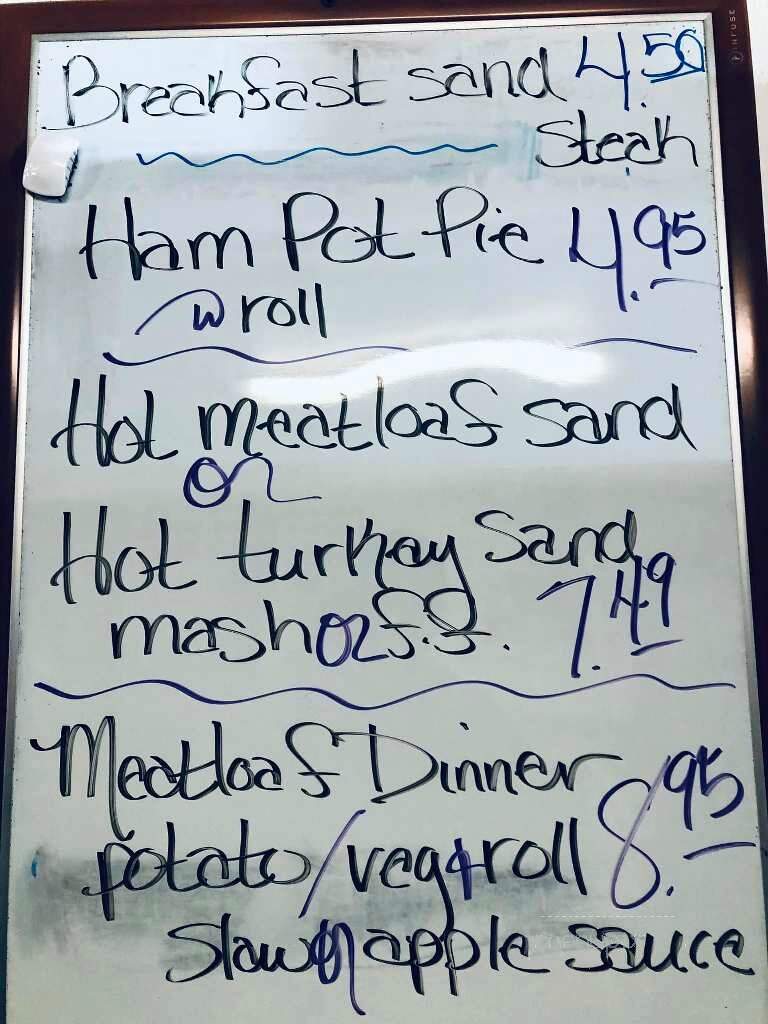 Breakfast sand 4.50
Steak
Ham Pot Pie 4.95
w roll
Hot meatloaf sand
or
Hot turkey Sand
mash or f.f. 7.49
Meatloaf Dinner
potato/veg + roll 8.95
Slaw or apple sauce
INFUSE